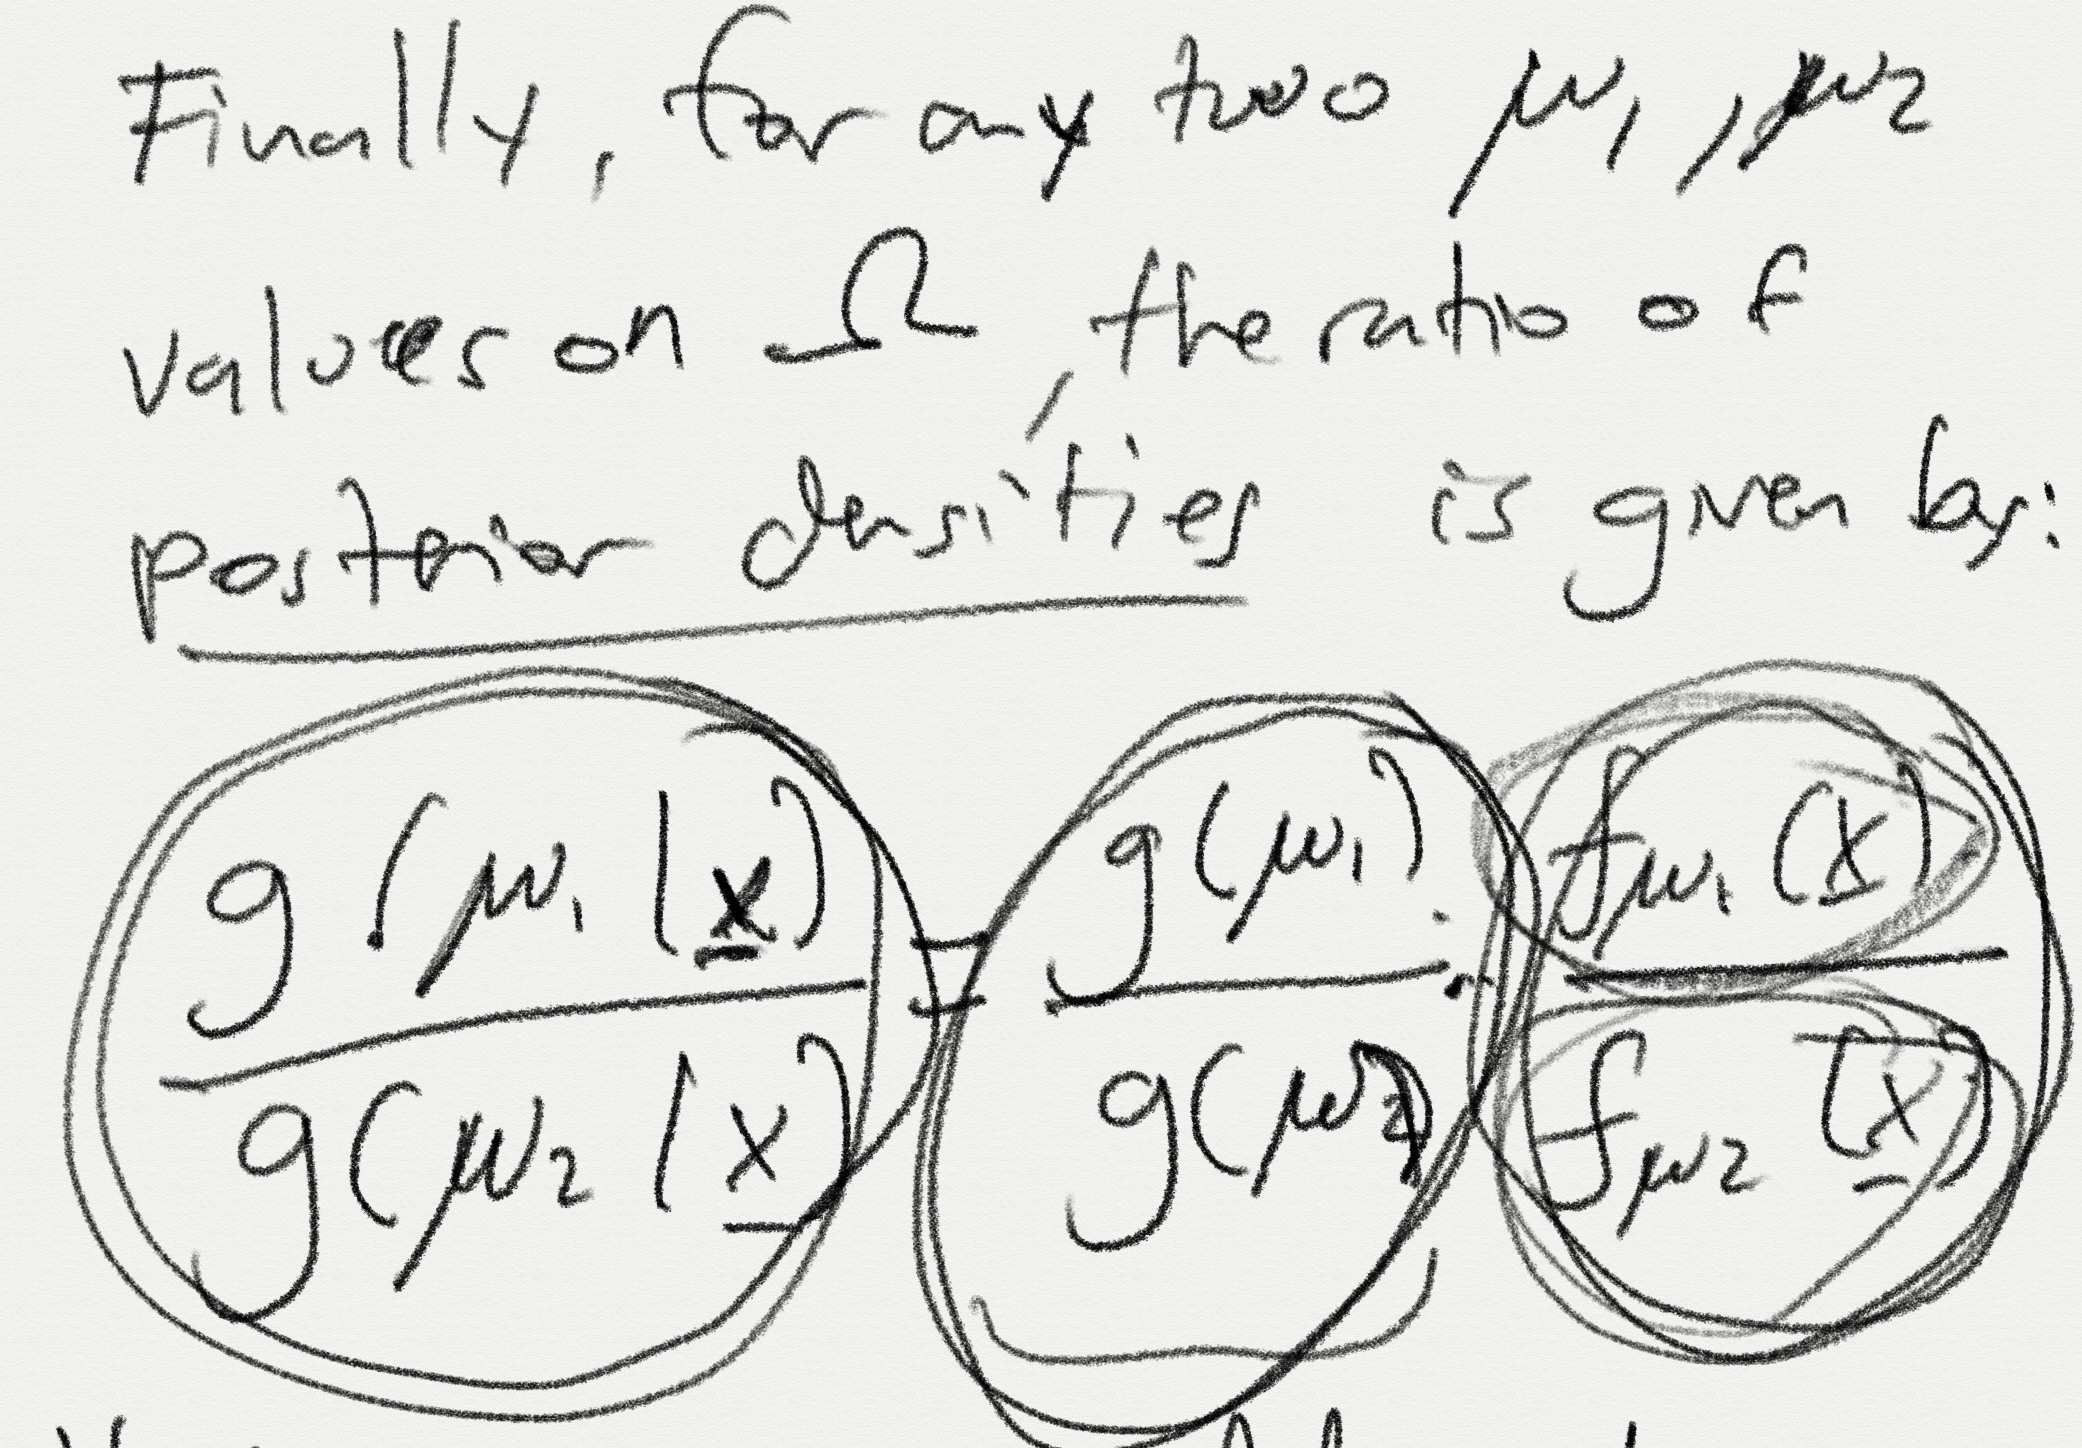 Finally, for any two μ₁, μ₂
values on Ω, the ratio of
posterior densities is given by:
g(μ₁|x) / g(μ₂|x) = g(μ₁) / g(μ₂) · f_μ₁(x) / f_μ₂(x)